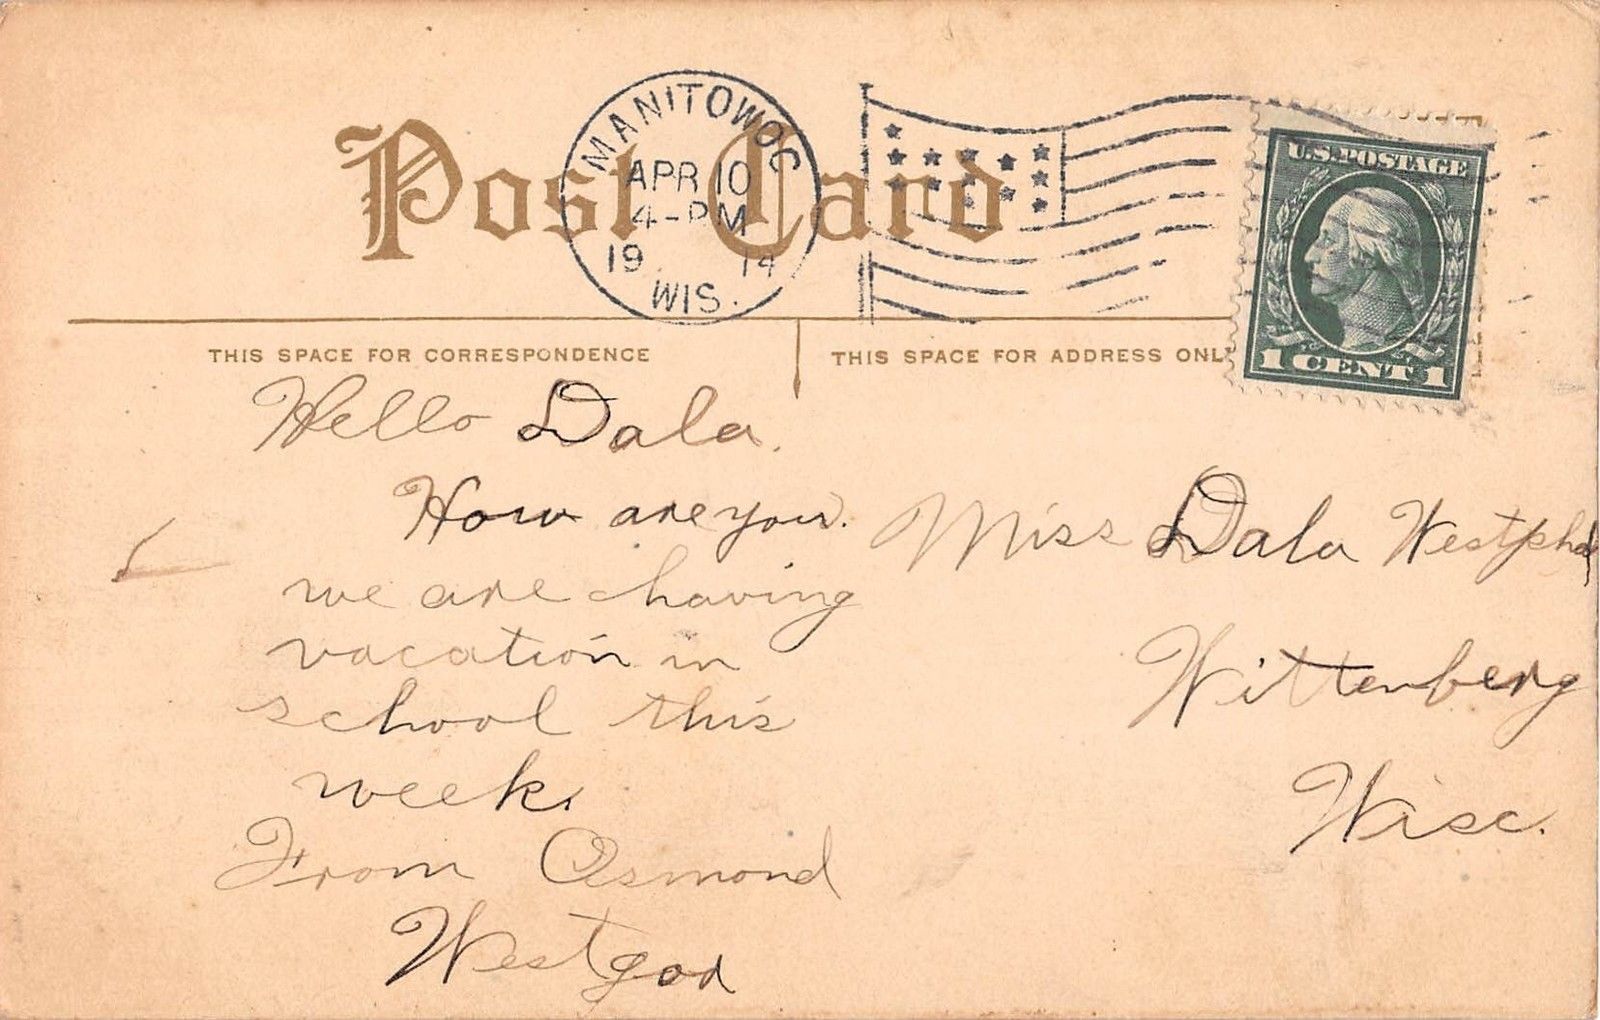 Post Card
MANITOWOC
APR 10
4-PM
19 14
WIS.
U.S. POSTAGE
1 CENT 1
THIS SPACE FOR CORRESPONDENCE
THIS SPACE FOR ADDRESS ONL
Hello Dala.
How are you.
we are having
vacation in
school this
week.
From Osmond
Westgor
Miss Dala Westphal
Wittenberg
Wisc.